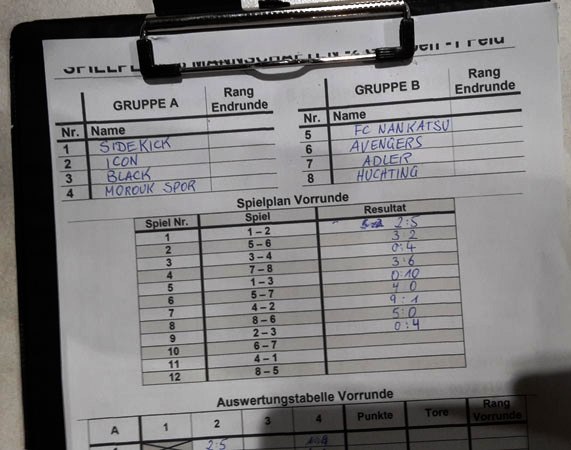 GRUPPE A Rang Endrunde
Nr. Name
1 SIDEKICK
2 ICON
3 BLACK
4 MOROUK SPOR
GRUPPE B Rang Endrunde
Name
5 FC NANKATSU
6 AVENGERS
7 ADLER
8 HUCHTING
Spielplan Vorrunde
Spiel Nr. Spiel Resultat
1 1 – 2 2:5
2 5 – 6 3 2
3 3 – 4 0:4
4 7 – 8 3:6
5 1 – 3 0:10
6 5 – 7 4 0
7 4 – 2 9:1
8 8 – 6 5:0
9 2 – 3 0:4
10 6 – 7
11 4 – 1
12 8 – 5
Auswertungstabelle Vorrunde
A 1 2 3 4 Punkte Tore Rang Vorrunde
2:5